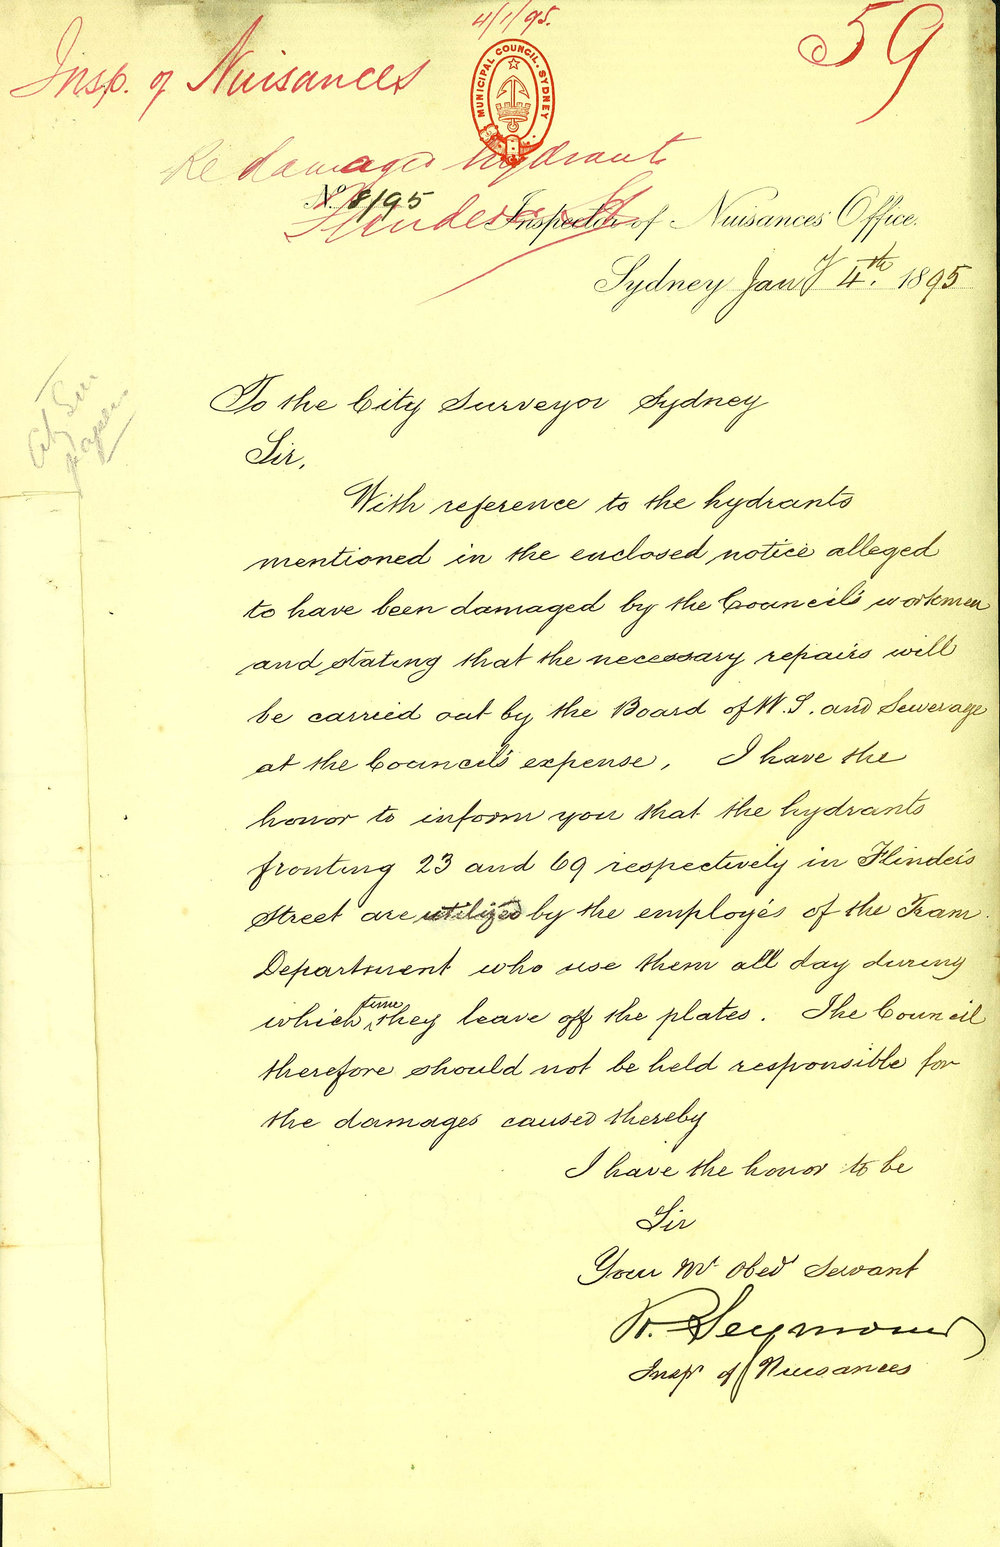 4/1/95.
59
Insp. of Nuisances
MUNICIPAL COUNCIL. SYDNEY
Re damaged hydrants
Flinders St
No. 8/95
Inspector of Nuisances' Office.
Sydney Jany 4th. 1895
City Sur
papers
To the City Surveyor Sydney
Sir,
With reference to the hydrants
mentioned in the enclosed notice alleged
to have been damaged by the Council's workmen
and stating that the necessary repairs will
be carried out by the Board of W.S. and Sewerage
at the Council's expense, I have the
honor to inform you that the hydrants
fronting 23 and 69 respectively in Flinders
Street are utilized by the employés of the Tram
Department who use them all day during
which time they leave off the plates. The Council
therefore should not be held responsible for
the damages caused thereby
I have the honor to be
Sir
Your Mt Obed Servant
R. Seymour
Inspr of Nuisances